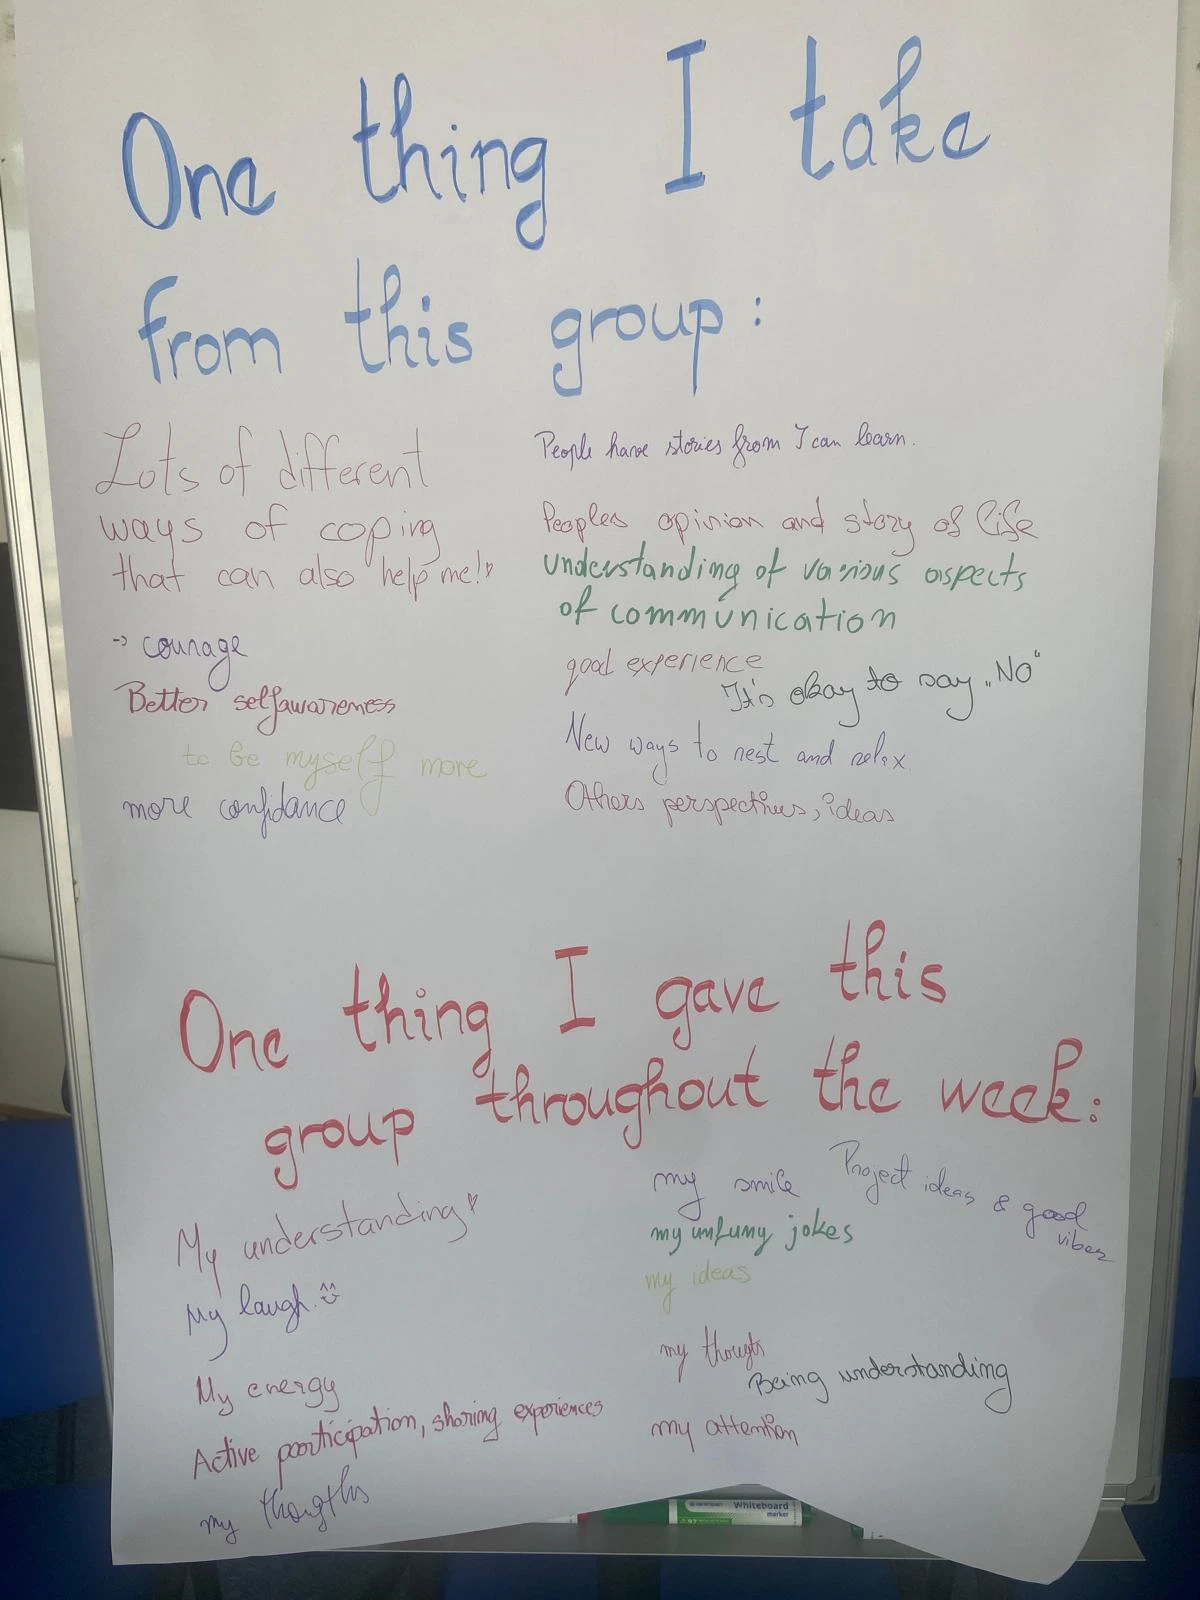 One thing I take
from this group:
Lots of different
ways of coping
that can also help me!
-> courage
Better selfawareness
to be myself more
more confidance
People have stories from I can learn.
Peoples opinion and story of life
understanding of various aspects
of communication
good experience
It's okay to say „NO“
New ways to rest and relax.
Others perspectives, ideas
One thing I gave this
group throughout the week:
My understanding
My laugh.
My energy
Active participation, sharing experiences
my thougths
my smile
Project ideas & good
vibes
my unfunny jokes
my ideas
my
Being understanding
my attention
Whiteboard
marker